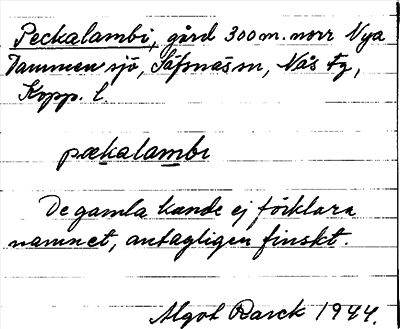 Peckalambi, gård 300 m. norr Nya
Dammen sjö, Säfsnäs sn, Nås tg,
Kopp. l.
pækalambi
De gamla kunde ej förklara
namnet, antagligen finskt.
Algot Rarck 1944.